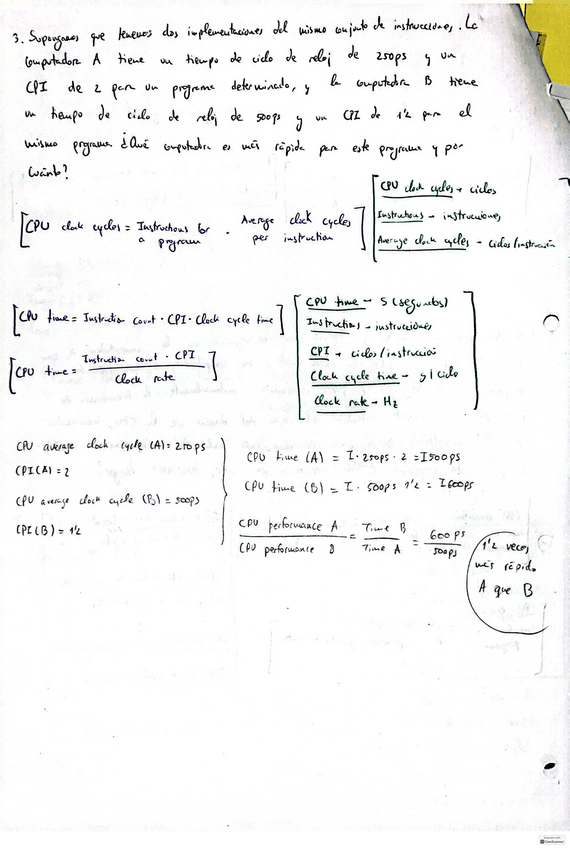 3. Supongamos que tenemos dos implementaciones del mismo conjunto de instrucciones. La
computadora A tiene un tiempo de ciclo de reloj de 250ps y un
CPI de 2 para un programa determinado, y la computadora B tiene
un tiempo de ciclo de reloj de 500ps y un CPI de 1'2 para el
mismo programa ¿Qué computadora es más rápida para este programa y por
cuánto?
[CPU clock cycles = Instructions for a program · Average clock cycles per instruction]
[CPU clock cycles → ciclos
Instructions → instrucciones
Average clock cycles → ciclos/instrucción
[CPU time = Instruction count · CPI · Clock cycle time]
[CPU time = Instruction count · CPI / Clock rate]
[CPU time → S (segundos)
Instructions → instrucciones
CPI → ciclos/instrucción
Clock cycle time → s/ciclo
Clock rate → Hz]
CPU average clock cycle (A) = 250ps
CPI(A) = 2
CPU average clock cycle (B) = 500ps
CPI(B) = 1'2
CPU time (A) = I · 250ps · 2 = I500ps
CPU time (B) = I · 500ps 1'2 = I600ps
CPU performance A / CPU performance B = Time B / Time A = 600ps / 500ps
1'2 veces
más rápido
A que B